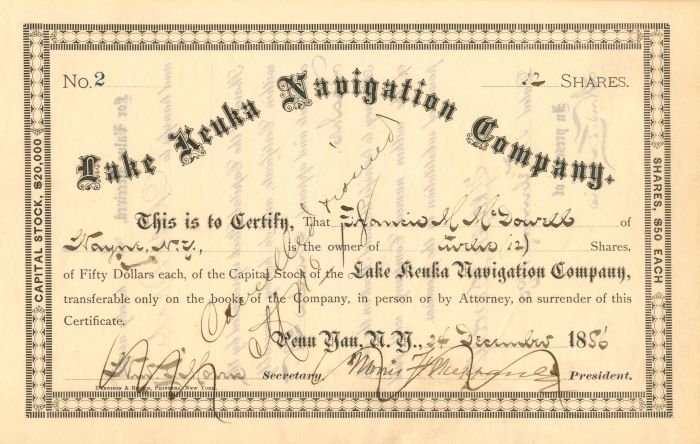 No. 2
12 SHARES.
Lake Keuka Navigation Company.
CAPITAL STOCK, $20,000
SHARES, $50 EACH
This is to Certify, That Francis M. McDowell of
Wayne, N.Y., is the owner of twelve (12) Shares,
of Fifty Dollars each, of the Capital Stock of the Lake Keuka Navigation Company,
transferable only on the books of the Company, in person or by Attorney, on surrender of this
Certificate.
Cancelled & reissued
Penn Yan, N.Y., 24 December 1886
Secretary.
Morris F. President.
DENNISON & BROWN, PRINTERS, NEW YORK.